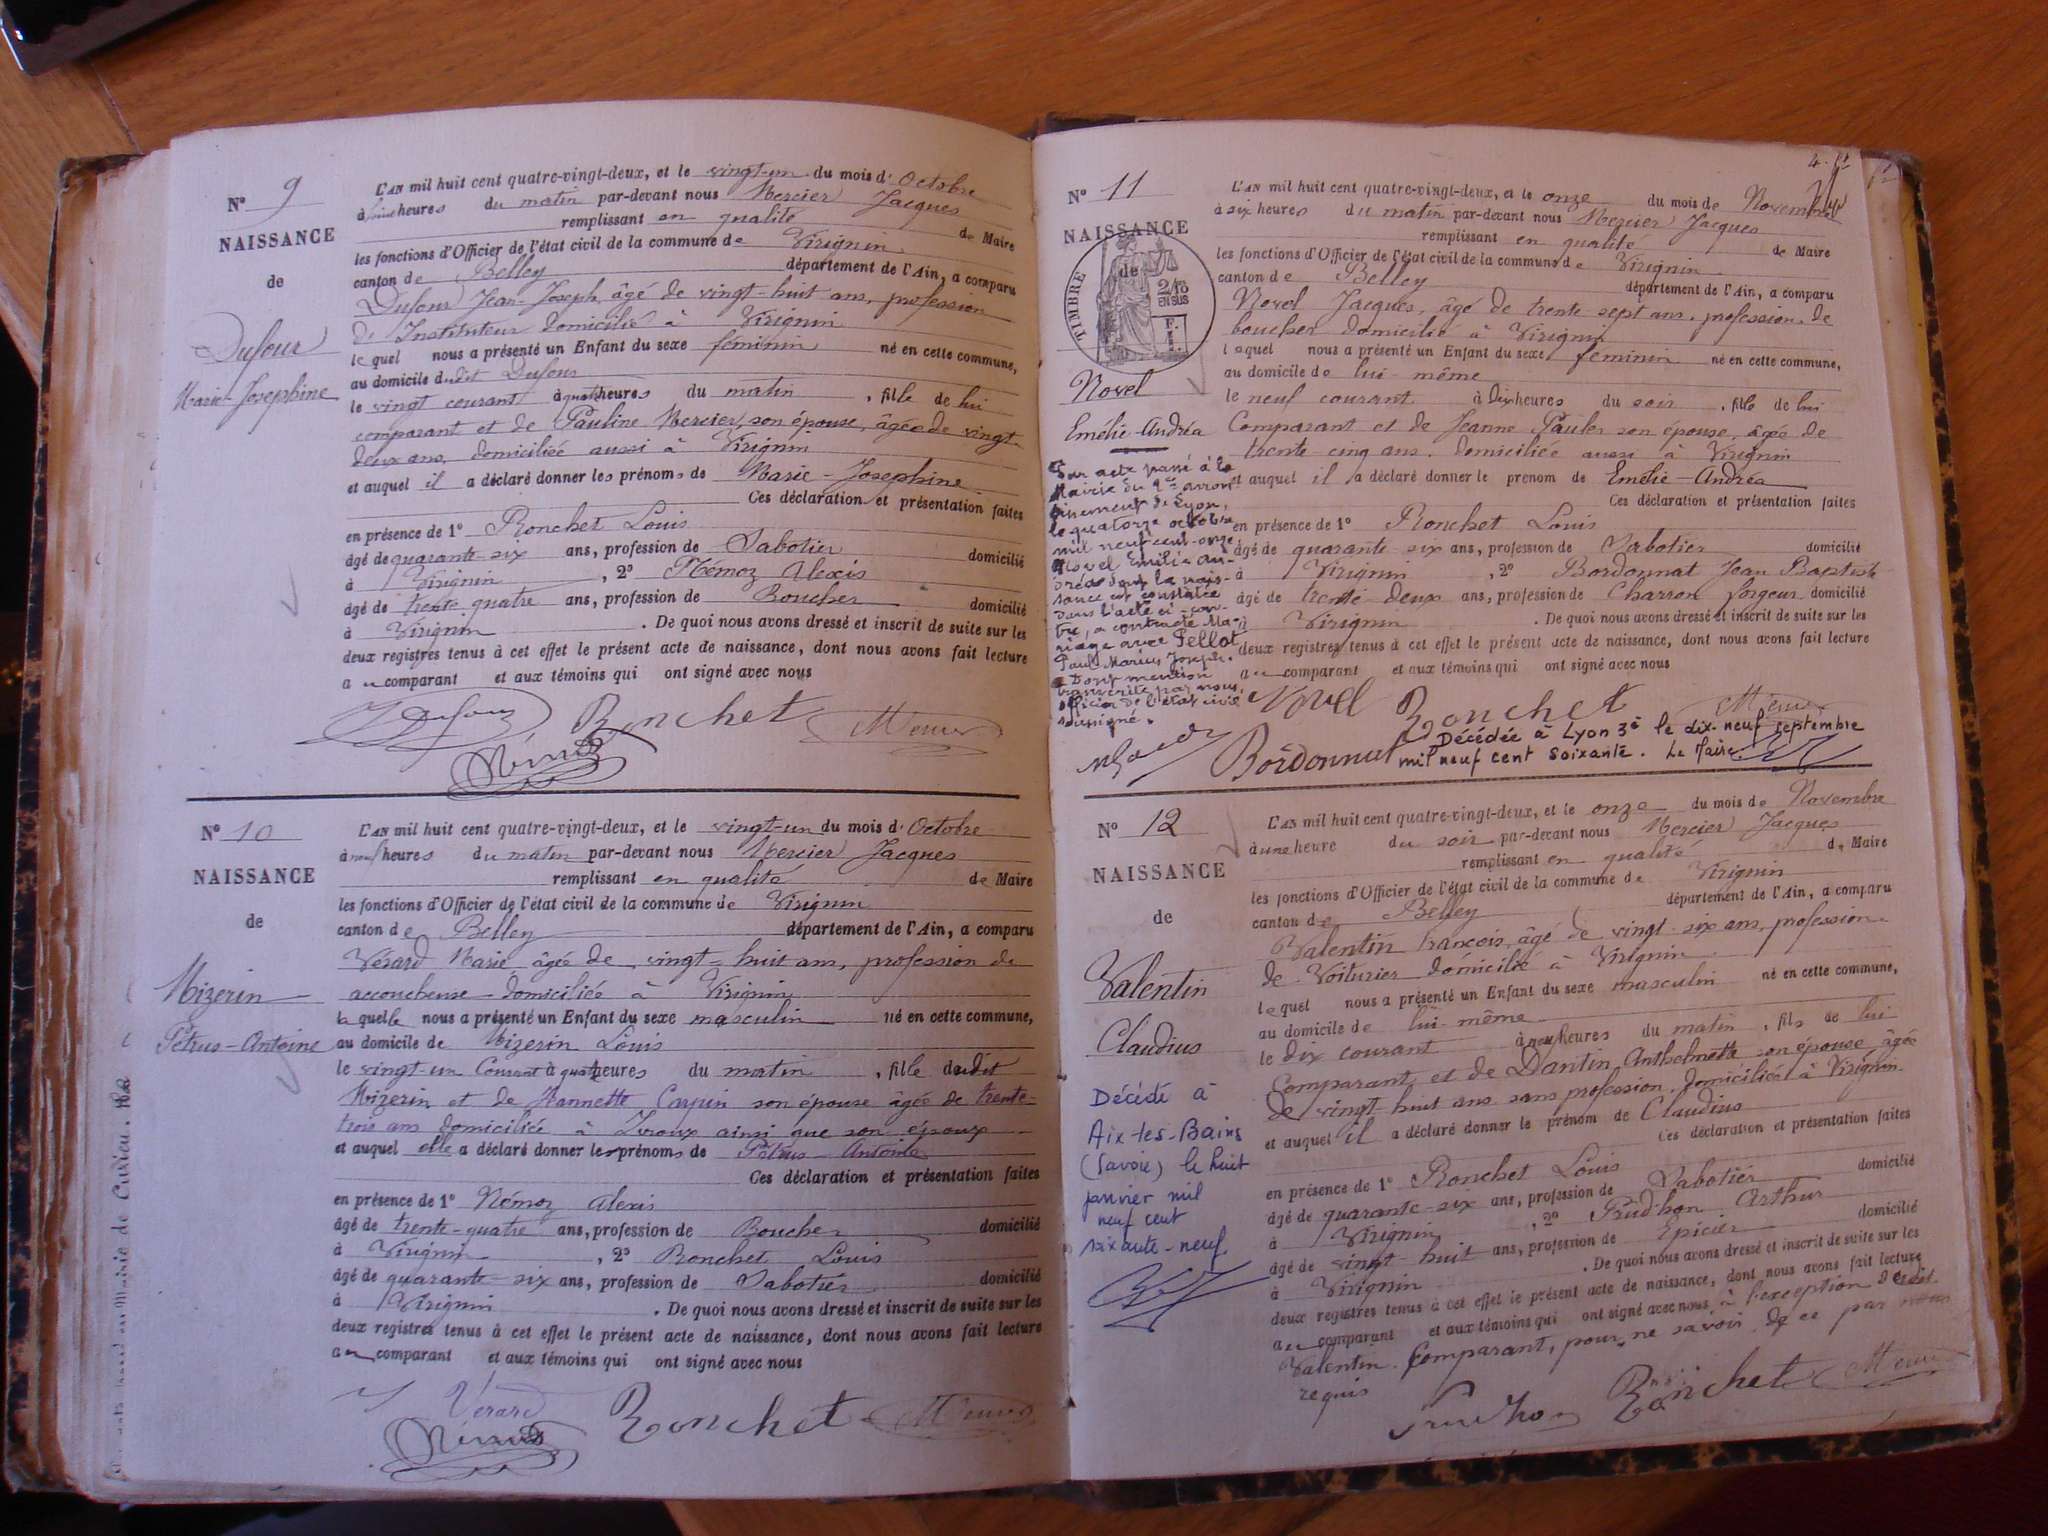 N° 9
NAISSANCE
de
Dufour
Marie-Josephine
L'AN mil huit cent quatre-vingt-deux, et le vingt-un du mois d'Octobre
heures du matin par-devant nous Mercier Jacques
remplissant en qualité de Maire
les fonctions d'Officier de l'état civil de la commune de Virignin
canton de Belley département de l'Ain, a comparu
Dufour Jean-Joseph, âgé de vingt-huit ans, profession
d'Instituteur domicilié à Virignin
lequel nous a présenté un Enfant du sexe féminin né en cette commune,
au domicile dudit Dufour
le vingt courant à quatre heures du matin, fille de lui
comparant et de Pauline Mercier, son épouse, âgée de vingt-
deux ans, domiciliée aussi à Virignin
et auquel il a déclaré donner les prénoms de Marie-Josephine
Ces déclaration et présentation faites
en présence de 1° Ronchet Louis
âgé de quarante-six ans, profession de Sabotier domicilié
à Virignin, 2° Némoz Alexis
âgé de trente quatre ans, profession de Boucher domicilié
à Virignin. De quoi nous avons dressé et inscrit de suite sur les
deux registres tenus à cet effet le présent acte de naissance, dont nous avons fait lecture
au comparant et aux témoins qui ont signé avec nous
Dufour Ronchet Mercier
Némoz
N° 10
NAISSANCE
de
Mizerin
Pétrus-Antoine
L'AN mil huit cent quatre-vingt-deux, et le vingt-un du mois d'Octobre
à neuf heures du matin par-devant nous Mercier Jacques
remplissant en qualité de Maire
les fonctions d'Officier de l'état civil de la commune de Virignin
canton de Belley département de l'Ain, a comparu
Vérard Marie âgée de vingt-huit ans, profession de
accoucheuse domiciliée à Virignin
laquelle nous a présenté un Enfant du sexe masculin né en cette commune,
au domicile de Mizerin Louis
le vingt-un Courant à quatre heures du matin, fille dudit
Mizerin et de Nannette Carpin son épouse âgée de trente-
trois ans domiciliée à ainsi que son époux
et auquel elle a déclaré donner les prénoms de Pétrus-Antoine
Ces déclaration et présentation faites
en présence de 1° Némoz Alexis
âgé de trente-quatre ans, profession de Boucher domicilié
à Virignin, 2° Ronchet Louis
âgé de quarante-six ans, profession de Sabotier domicilié
à Virignin. De quoi nous avons dressé et inscrit de suite sur les
deux registres tenus à cet effet le présent acte de naissance, dont nous avons fait lecture
au comparant et aux témoins qui ont signé avec nous
Vérard Ronchet Mercier
Némoz
N° 11
NAISSANCE
de
TIMBRE
2/10
EN SUS
Novel
Emélie-Andréa
Par acte passé à la
Mairie du 2me arron
dissement de Lyon,
le quatorze octobre
mil neuf cent onze
Novel Emélie An-
dréa dont la nais-
sance est constatée
dans l'acte ci-con-
tre, a contracté Ma-
riage avec Pellot
Paul Marius Joseph.
Dont mention
transcrite par nous,
officier de l'état civil
soussigné.
L'AN mil huit cent quatre-vingt-deux, et le onze du mois de Novembre
à six heures du matin par-devant nous Mercier Jacques
remplissant en qualité de Maire
les fonctions d'Officier de l'état civil de la commune de Virignin
canton de Belley département de l'Ain, a comparu
Novel Jacques, âgé de trente sept ans, profession de
boucher domicilié à Virignin
lequel nous a présenté un Enfant du sexe féminin né en cette commune,
au domicile de lui-même
le neuf courant à dix heures du soir, fille de lui
Comparant et de Jeanne Pauler son épouse, âgée de
trente cinq ans. Domiciliée aussi à Virignin
et auquel il a déclaré donner le prenom de Emélie-Andréa
Ces déclaration et présentation faites
en présence de 1° Ronchet Louis
âgé de quarante-six ans, profession de Sabotier domicilié
à Virignin, 2° Bordonnat Jean Baptiste
âgé de trente-deux ans, profession de Charron forgeur domicilié
à Virignin. De quoi nous avons dressé et inscrit de suite sur les
deux registres tenus à cet effet le présent acte de naissance, dont nous avons fait lecture
au comparant et aux témoins qui ont signé avec nous
Novel Ronchet Mercier
Bordonnat
Décédée à Lyon 3e le dix-neuf septembre
mil neuf cent soixante. Le Maire
N° 12
NAISSANCE
de
Valentin
Claudius
Décédé à
Aix-les-Bains
(Savoie) le huit
janvier mil
neuf cent
soixante-neuf
L'AN mil huit cent quatre-vingt-deux, et le onze du mois de Novembre
à une heure du soir par-devant nous Mercier Jacques
remplissant en qualité de Maire
les fonctions d'Officier de l'état civil de la commune de Virignin
canton de Belley département de l'Ain, a comparu
Valentin François, âgé de vingt-six ans, profession
de Voiturier domicilié à Virignin
lequel nous a présenté un Enfant du sexe masculin né en cette commune,
au domicile de lui-même
le dix courant à neuf heures du matin, fils de lui
Comparant et de Dantin Anthelmette son épouse âgée
de vingt-huit ans sans profession. domiciliée à Virignin
et auquel il a déclaré donner le prénom de Claudius
Ces déclaration et présentation faites
en présence de 1° Ronchet Louis
âgé de quarante-six ans, profession de Sabotier domicilié
à Virignin, 2° Prudhon Arthur
âgé de vingt-huit ans, profession de Epicier domicilié
à Virignin. De quoi nous avons dressé et inscrit de suite sur les
deux registres tenus à cet effet le présent acte de naissance, dont nous avons fait lecture
au comparant et aux témoins qui ont signé avec nous à l'exception dudit
Valentin Comparant, pour ne savoir de ce par nous
requis
Prudhon Ronchet Mercier